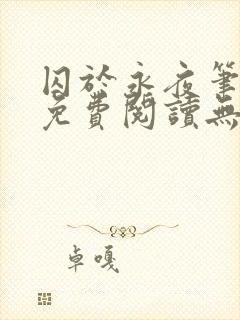 囚於永夜筆
免費閱讀無
卓嘎